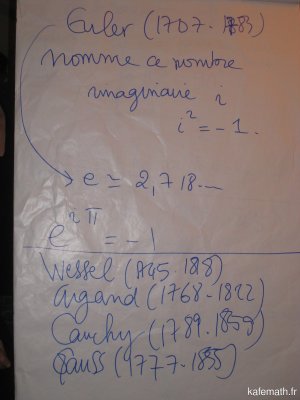 Euler (1707-1783)
nomme ce nombre
imaginaire i
i² = -1.
e ≃ 2,718...
e^iπ = -1
Wessel (1745-1818)
Argand (1768-1822)
Cauchy (1789-1859)
Gauss (1777-1855)
kafemath.fr